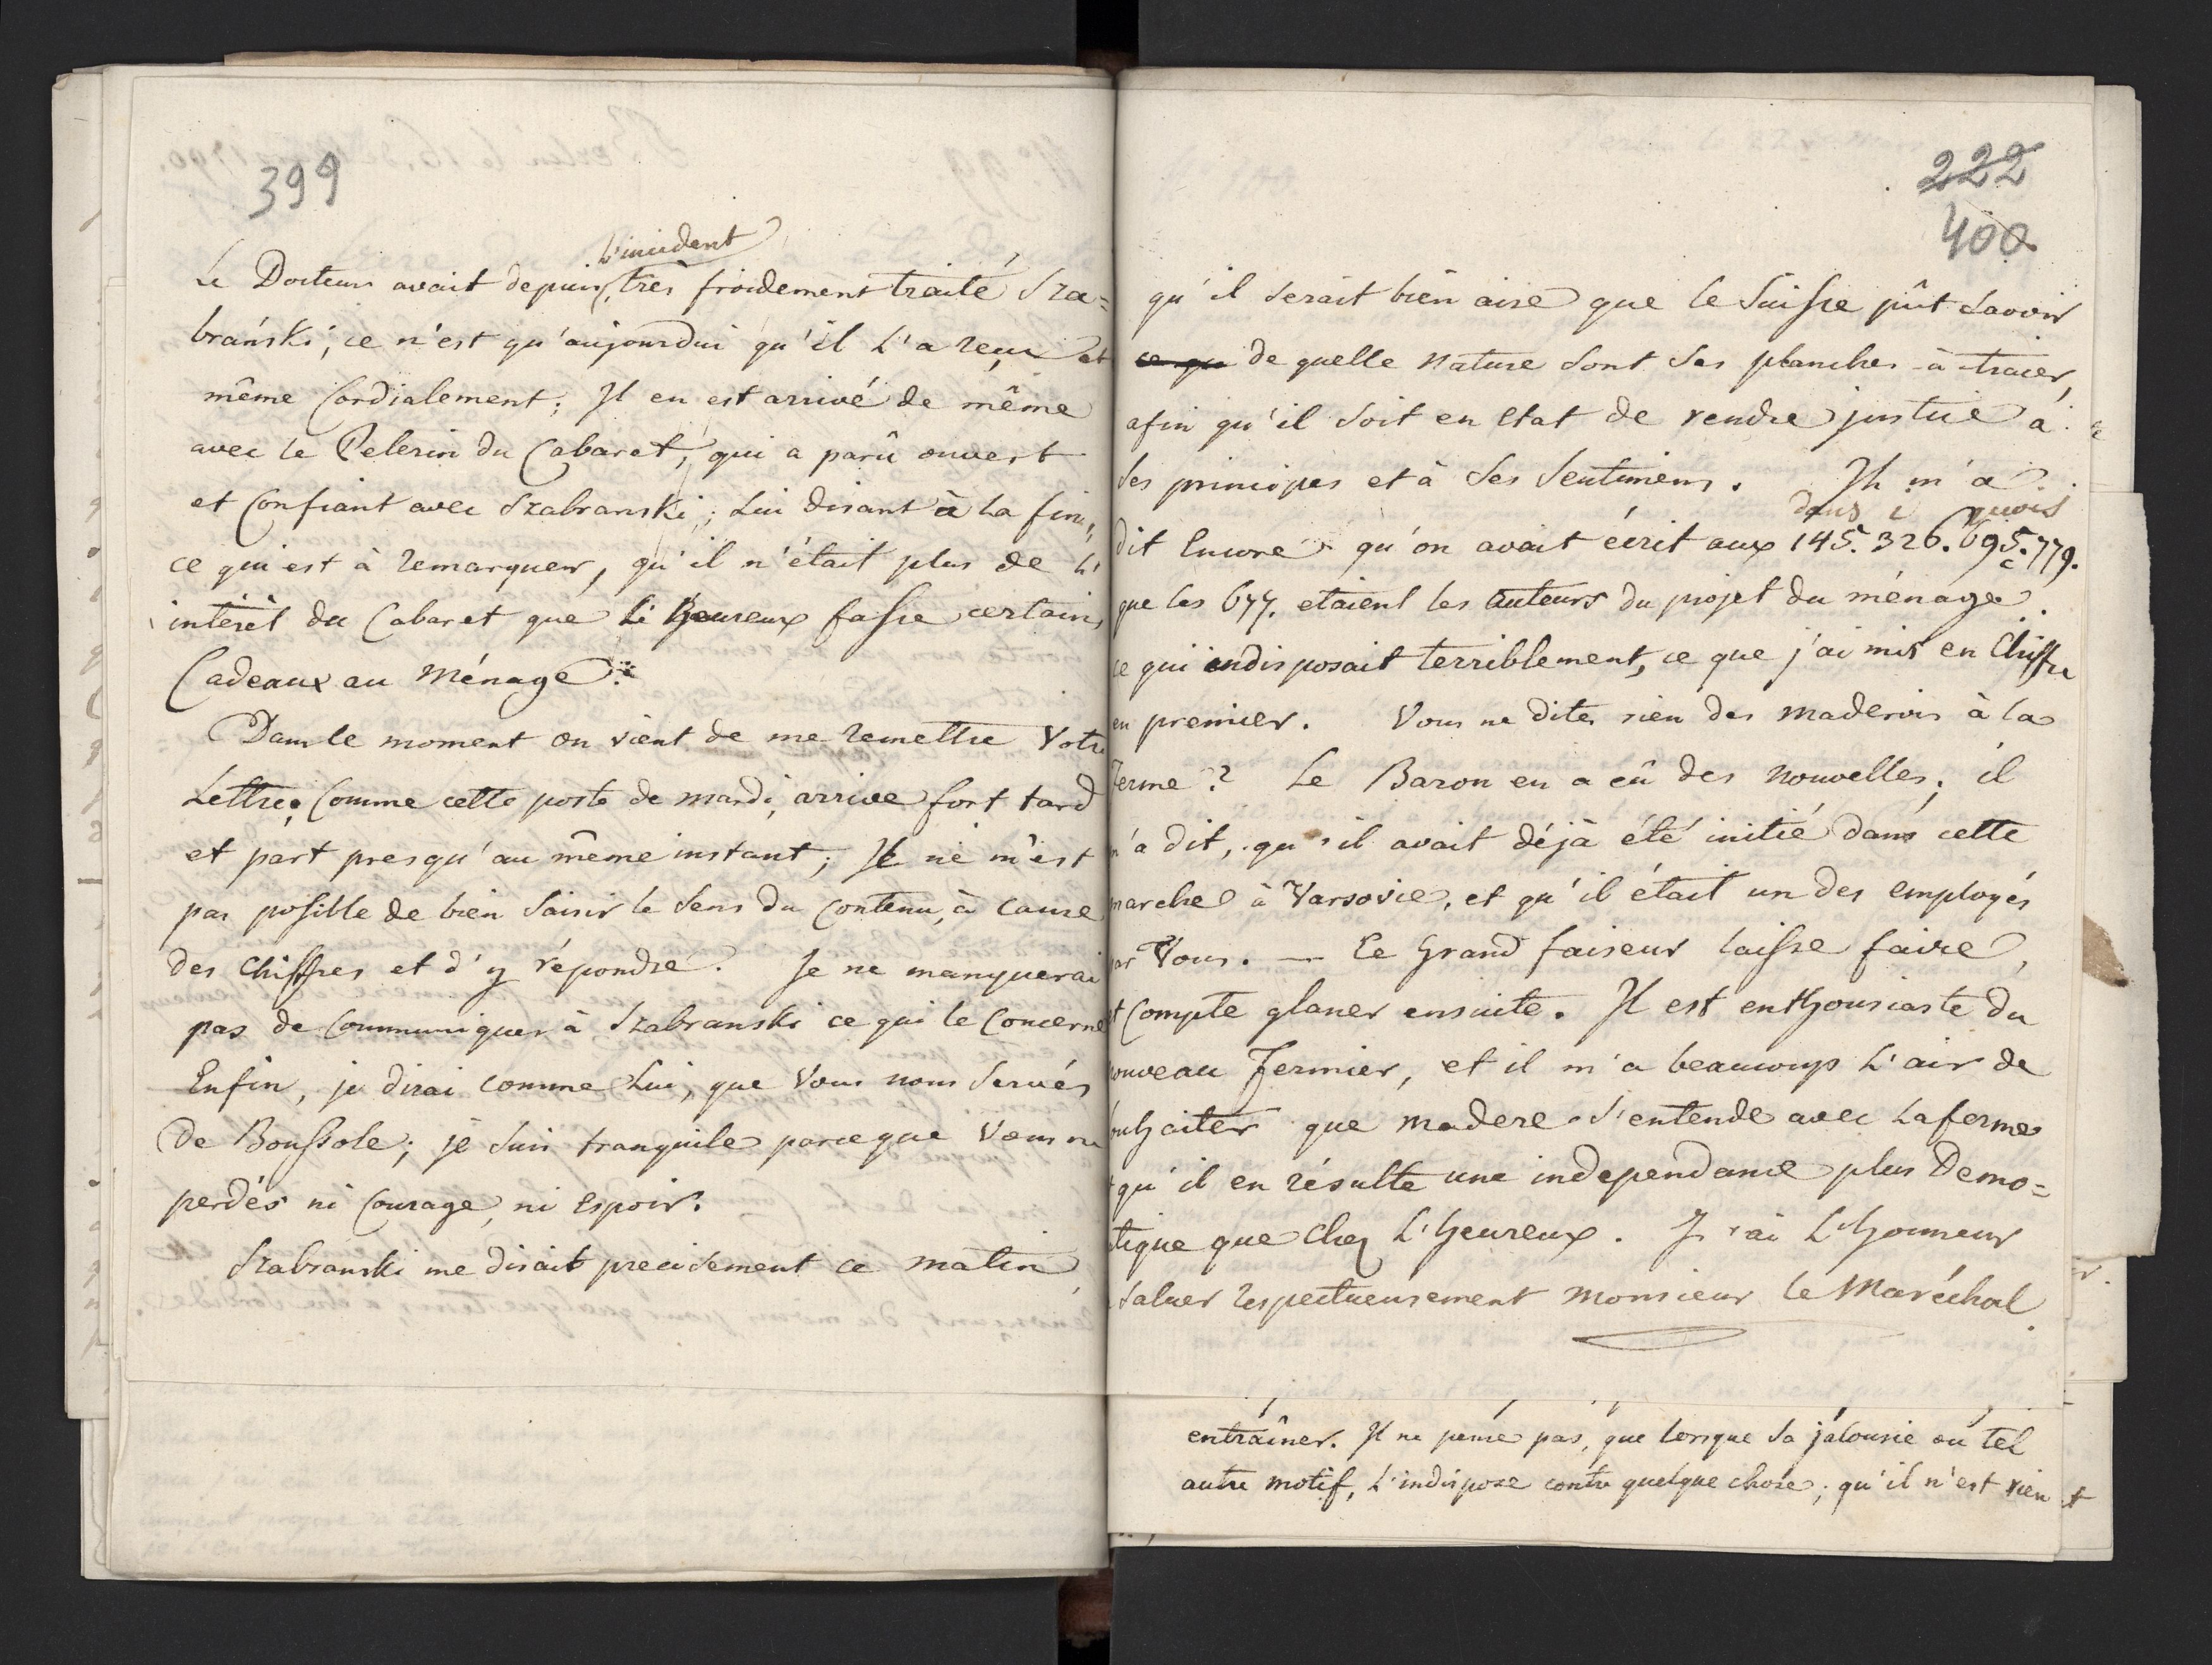 399
L'incident
Le Docteur avait depuis, très froidement traité Sza=
brański; ce n'est qu'aujourdui qu'il l'a reçu et
même Cordialement; Il en est arrivé de même
avec le Pelerin du Cabaret, qui a parû ouvert
et Confiant avec Szabranski; Lui disant à la fin,
ce qui est à remarquer, qu'il n'était plus de l'
intérêt du Cabaret que L'heureux fasse certains
Cadeaux au Ménage.
Dans le moment on vient de me remettre Votre
Lettre; Comme cette poste de mardi, arrive fort tard
et part presqu'au même instant; Il ne m'est
pas possible de bien saisir le sens du Contenu, à cause
des Chiffres et d'y répondre. Je ne manquerai
pas de Communiquer à Szabranski ce qui le Concerne
Enfin, je dirai comme Lui, que Vous nous servés
de Boussole; je suis tranquile parceque Vous ne
perdés ni Courage, ni Espoir.
Szabranski me disait precisement ce matin,
222
400
qu'il serait bien aise que le Suisse pût savoir
ce qu de quelle Nature sont ses planches à tracer,
afin qu'il soit en Etat de rendre justice à
ses principes et à ses sentimens. Il m'a
dit Encore qu'on avait écrit aux 145. 326. 695. 779.
que les 677. etaient les Auteurs du projet du ménage
ce qui indisposait terriblement, ce que j'ai mis en Chiffre
en premier. Vous ne dites rien des Maderois à la
ferme? Le Baron en a eû des Nouvelles; il
m'a dit, qu'il avait déjà été initié dans cette
marche à Varsovie, et qu'il était un des employés
par Vous. — Le Grand faiseur laisse faire,
et Compte glaner ensuite. Il est enthousiaste du
nouveau Fermier, et il m'a beaucoup l'air de
souhaiter que Madere s'entende avec La ferme
qu'il en résulte une independance plus Demo=
tique que chez L'heureux. J'ai L'honneur
saluer respectueusement Monsieur le Maréchal.
entraîner. Il ne pense pas, que lorsque sa jalousie ou tel
autre motif, L'indispose contre quelque chose; qu'il n'est rien